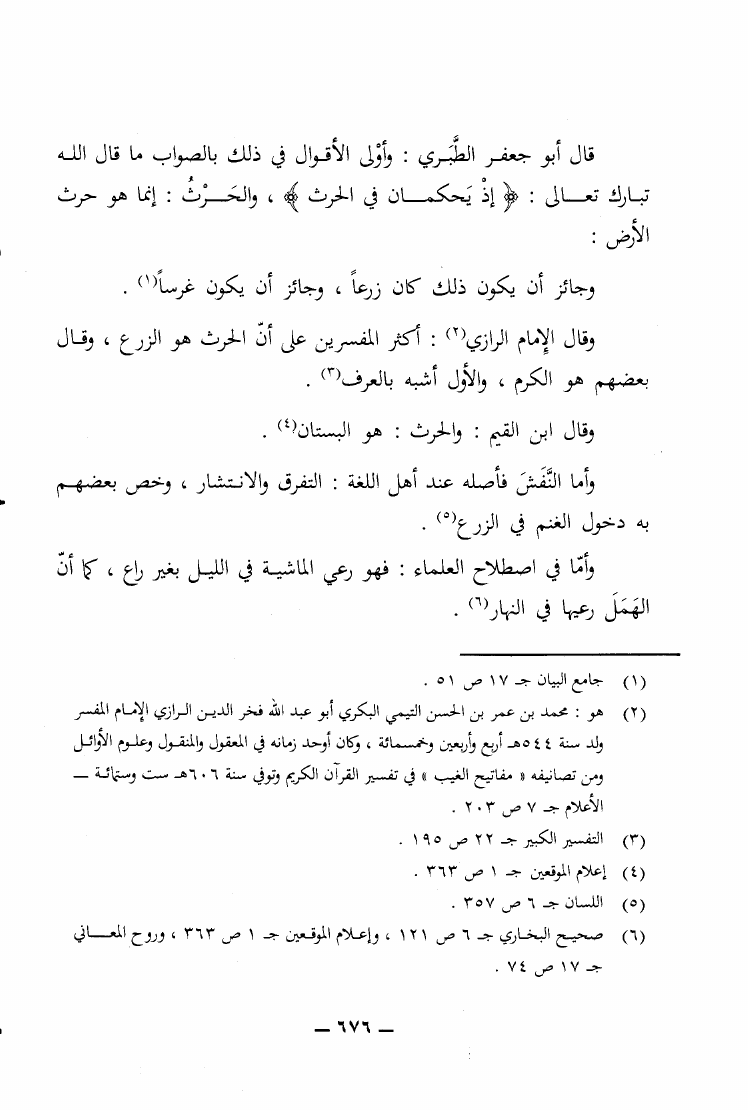 قال أبو جعفر الطَّبَري : وأوْلى الأقوال في ذلك بالصواب ما قال الله
تبارك تعالى : ﴿ إذْ يَحكمان في الحرث ﴾ ، والحَرْثُ : إنما هو حرث
الأرض :
وجائز أن يكون ذلك كان زرعاً ، وجائز أن يكون غرساً(١) .
وقال الإمام الرازي(٢) : أكثر المفسرين على أنّ الحرث هو الزرع ، وقال
بعضهم هو الكرم ، والأول أشبه بالعرف(٣) .
وقال ابن القيم : والحرث : هو البستان(٤) .
وأما النَّفَشَ فأصله عند أهل اللغة : التفرق والانتشار ، وخص بعضهم
به دخول الغنم في الزرع(٥) .
وأمّا في اصطلاح العلماء : فهو رعي الماشية في الليل بغير راع ، كما أنّ
الهَمَلَ رعيها في النهار(٦) .
(١) جامع البيان جـ ١٧ ص ٥١ .
(٢) هو : محمد بن عمر بن الحسن التيمي البكري أبو عبد الله فخر الدين الرازي الإمام المفسر
ولد سنة ٥٤٤هـ أربع وأربعين وخمسمائة ، وكان أوحد زمانه في المعقول والمنقول وعلوم الأوائل
ومن تصانيفه « مفاتيح الغيب » في تفسير القرآن الكريم وتوفي سنة ٦٠٦هـ ست وستمائة —
الأعلام جـ ٧ ص ٢٠٣ .
(٣) التفسير الكبير جـ ٢٢ ص ١٩٥ .
(٤) إعلام الموقعين جـ ١ ص ٣٦٣ .
(٥) اللسان جـ ٦ ص ٣٥٧ .
(٦) صحيح البخاري جـ ٦ ص ١٢١ ، وإعلام الموقعين جـ ١ ص ٣٦٣ ، وروح المعاني
جـ ١٧ ص ٧٤ .
— ٦٧٦ —